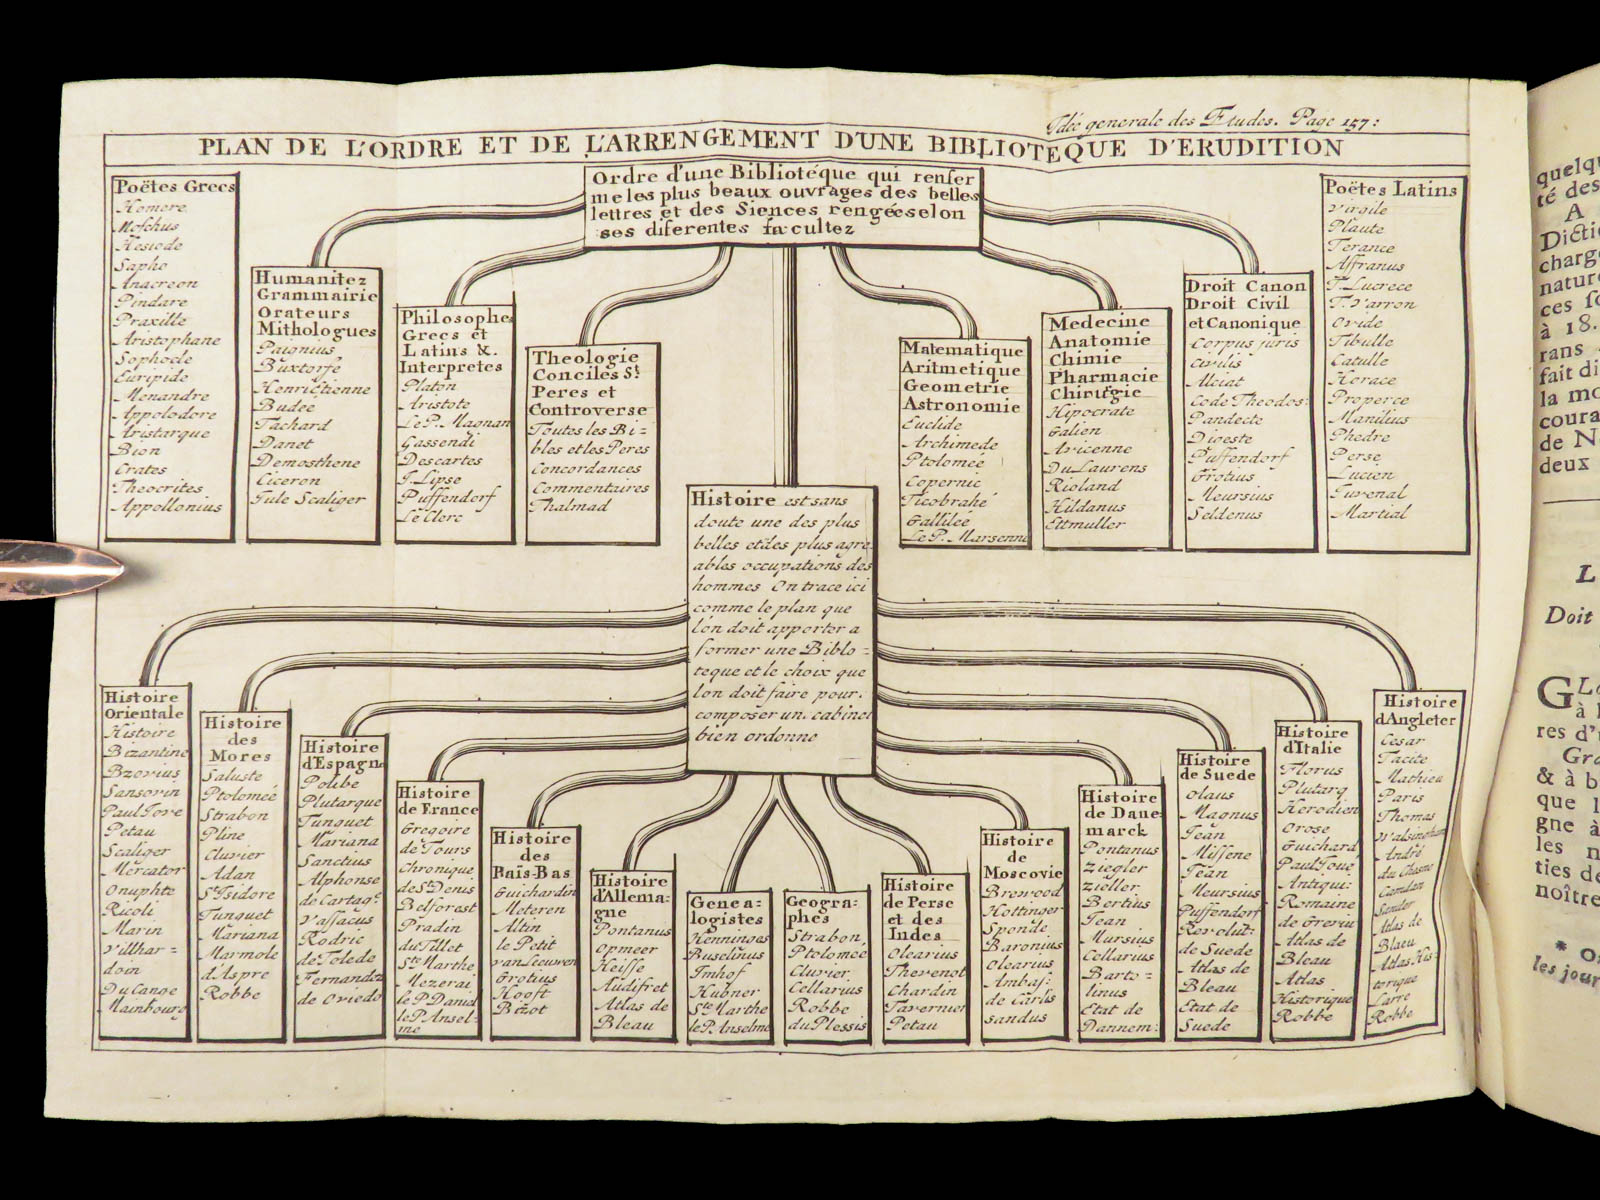 Idée generale des Etudes. Page 157:
PLAN DE L'ORDRE ET DE L'ARRENGEMENT D'UNE BIBLIOTEQUE D'ERUDITION
Ordre d'une Bibliotéque qui renfer
me les plus beaux ouvrages des belles
lettres et des Siences rengées selon
ses diferentes facultez
Poëtes Grecs
Homere
Moschus
Hesiode
Sapho
Anacreon
Pindare
Praxille
Aristophane
Sophocle
Euripide
Menandre
Appolodore
Aristarque
Bion
Crates
Theocrites
Appollonius
Humanitez
Grammairie
Orateurs
Mithologues
Paignius
Buxtorfe
Henrictienne
Budée
Tachard
Danet
Demosthene
Ciceron
Jule Scaliger
Philosophe
Grecs et
Latins &.
Interpretes
Platon
Aristote
Le P. Magnan
Gassendi
Descartes
J. Lipse
Puffendorf
Le Clerc
Theologie
Conciles St.
Peres et
Controverse
Toutes les Bi=
bles et les Peres
Concordances
Commentaires
Thalmad
Matematique
Aritmetique
Geometrie
Astronomie
Euclide
Archimede
Ptolomée
Copernic
Ticobrahé
Gallilée
Le P. Marsenne
Medecine
Anatomie
Chimie
Pharmacie
Chirurgie
Hipocrate
Galien
Avicenne
Du Laurens
Rioland
Hildanus
Ettmuller
Droit Canon
Droit Civil
et Canonique
Corpus juris
civilis
Alciat
Code Theodos:
Pandecte
Digeste
Puffendorf
Grotius
Meursius
Seldenus
Poëtes Latins
Virgile
Plaute
Terance
Affranus
T. Lucrece
T. Varron
Ovide
Tibulle
Catulle
Horace
Properce
Manilius
Phedre
Perse
Lucien
Juvenal
Martial
Histoire est sans
doute une des plus
belles et des plus agre
ables occupations des
hommes On trace ici
comme le plan que
l'on doit apporter a
former une Biblo=
teque et le choix que
l'on doit faire pour.
composer un cabinet
bien ordonne
Histoire
Orientale
Histoire
Bizantine
Bzovius
Sansorin
Paul Jove
Petau
Scaliger
Mercator
Onuphte
Ricoli
Marin
Villhar=
doin
Du Cange
Mainbourg
Histoire
des
Mores
Saluste
Ptolomée
Strabon
Pline
Cluvier
Adan
St. Isidore
Tunquet
Mariana
Marmole
d'Aspre
Robbe
Histoire
d'Espagn
Polibe
Plutarque
Tunquet
Mariana
Sanctius
Alphonse
de Cartag.
Vassæus
Rodric
de Tolede
Fernandez
de Oviedo
Histoire
de France
Gregoire
de Tours
Chronique
de St. Denis
Belforest
Pradin
du Tillet
Ste Marthe
Mezerai
le P Daniel
le P. Ansel=
me
Histoire
des
Païs-Bas
Guichardin
Meteren
Altin
le Petit
van Leeuwen
Grotius
Hooft
Bizot
Histoire
d'Allema=
gne
Pontanus
Opmeer
Heisse
Audifret
Atlas de
Bleau
Genea=
logistes
Henninges
Buselinus
Imhof
Hubner
Ste Marthe
le P. Anselme
Geogra=
phes
Strabon,
Ptolomée
Cluvier
Cellarius
Robbe
du Plessis
Histoire
de Perse
et des
Indes
Olearius
Thevenot
Chardin
Tavernier
Petau
Histoire
de
Moscovie
Brewood
Hottinger
Sponde
Baronius
Olearius
Ambaſ:
de Carlis
sandus
Histoire
de Dane
marck
Pontanus
Ziegler
Zieller
Bertius
Jean
Mursius
Cellarius
Barto=
linus
Etat de
Dannem:
Histoire
de Suede
Olaus
Magnus
Jean
Missene
Jean
Meursius
Puffendorf
Revolut:
de Suede
Atlas de
Bleau
Etat de
Suede
Histoire
d'Italie
Florus
Plutarq
Herodien
Orose
Guichard
Paul Joue
Antiqui:
Romaine
de Grevius
Atlas de
Bleau
Atlas
Historique
Robbe
Histoire
d'Angleter
Cesar
Tacite
Mathieu
Paris
Thomas
Walsingham
André
du Chesne
Camden
Sander
Atlas de
Blaeu
Atlas His=
torique
Larre
Robbe
quelqu
té des
A
Dictio
charg
natur
ces so
à 18.
rans
fait di
la mo
coura
de N
deux
L
Doit
GLo
à l
res d'
Gra
& à b
que l
gne à
les n
ties de
noître
* O
les jour